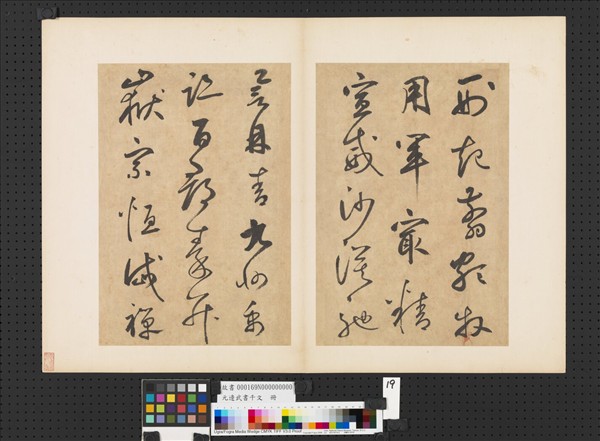 刑起翦頗牧
用軍最精
宣威沙漠馳
譽丹青九州禹
跡百郡秦并
嶽宗恒岱禪
故書 000169N000000000
元邊武書千文 冊
19